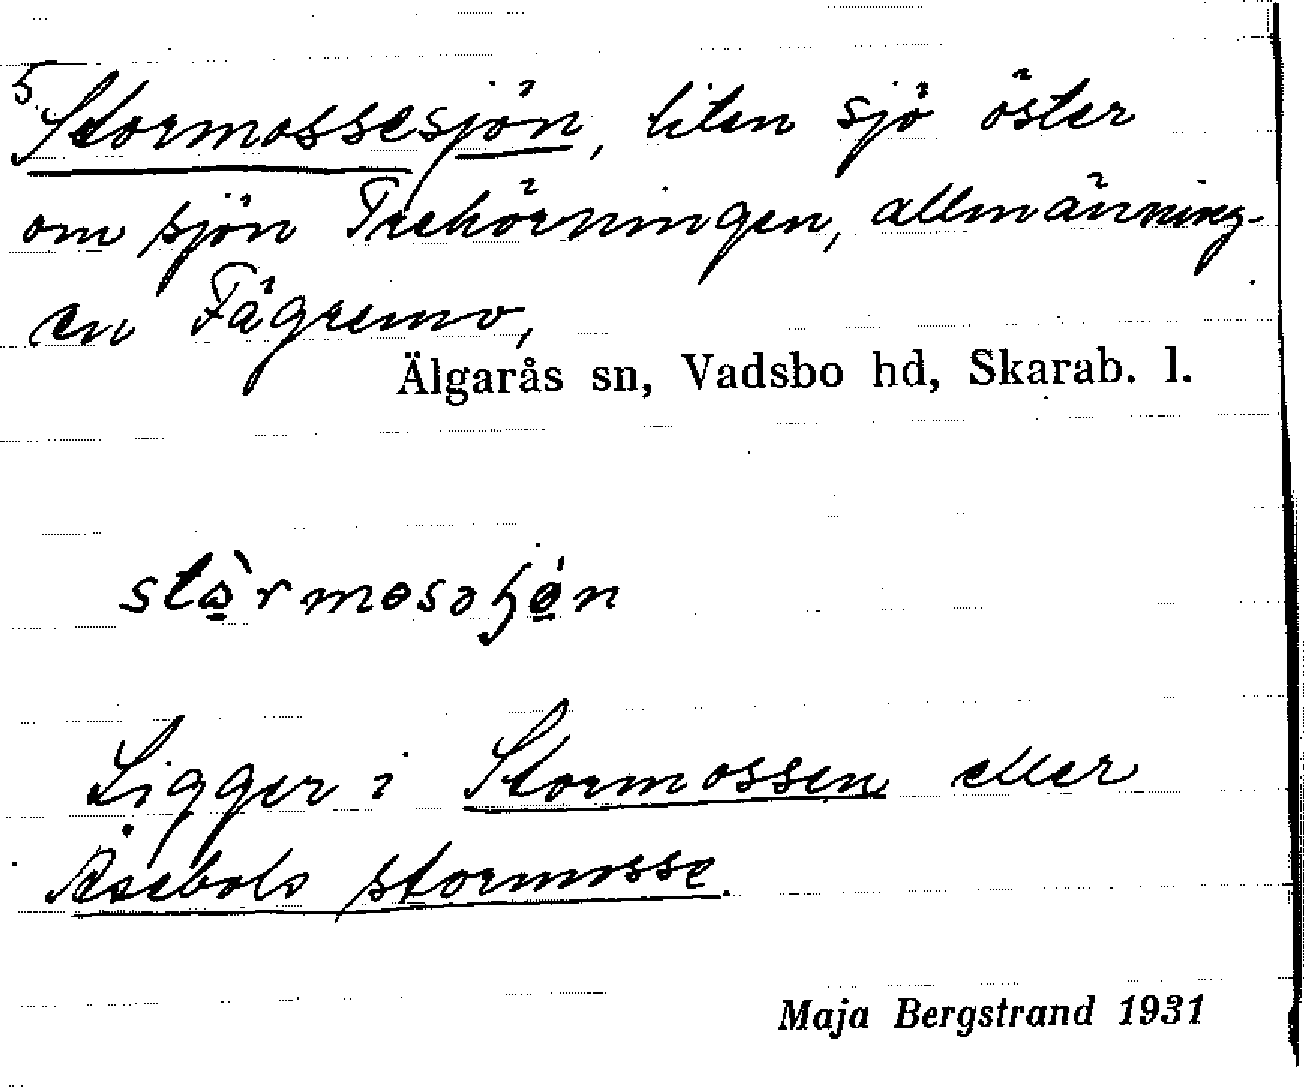 5
Stormossesjön, liten sjö öster
om sjön Trehörningen, allmänning-
en Fägremo,
Älgarås sn, Vadsbo hd, Skarab. l.
Ligger i Stormossen eller
Åsebols stormosse.
Maja Bergstrand 1931